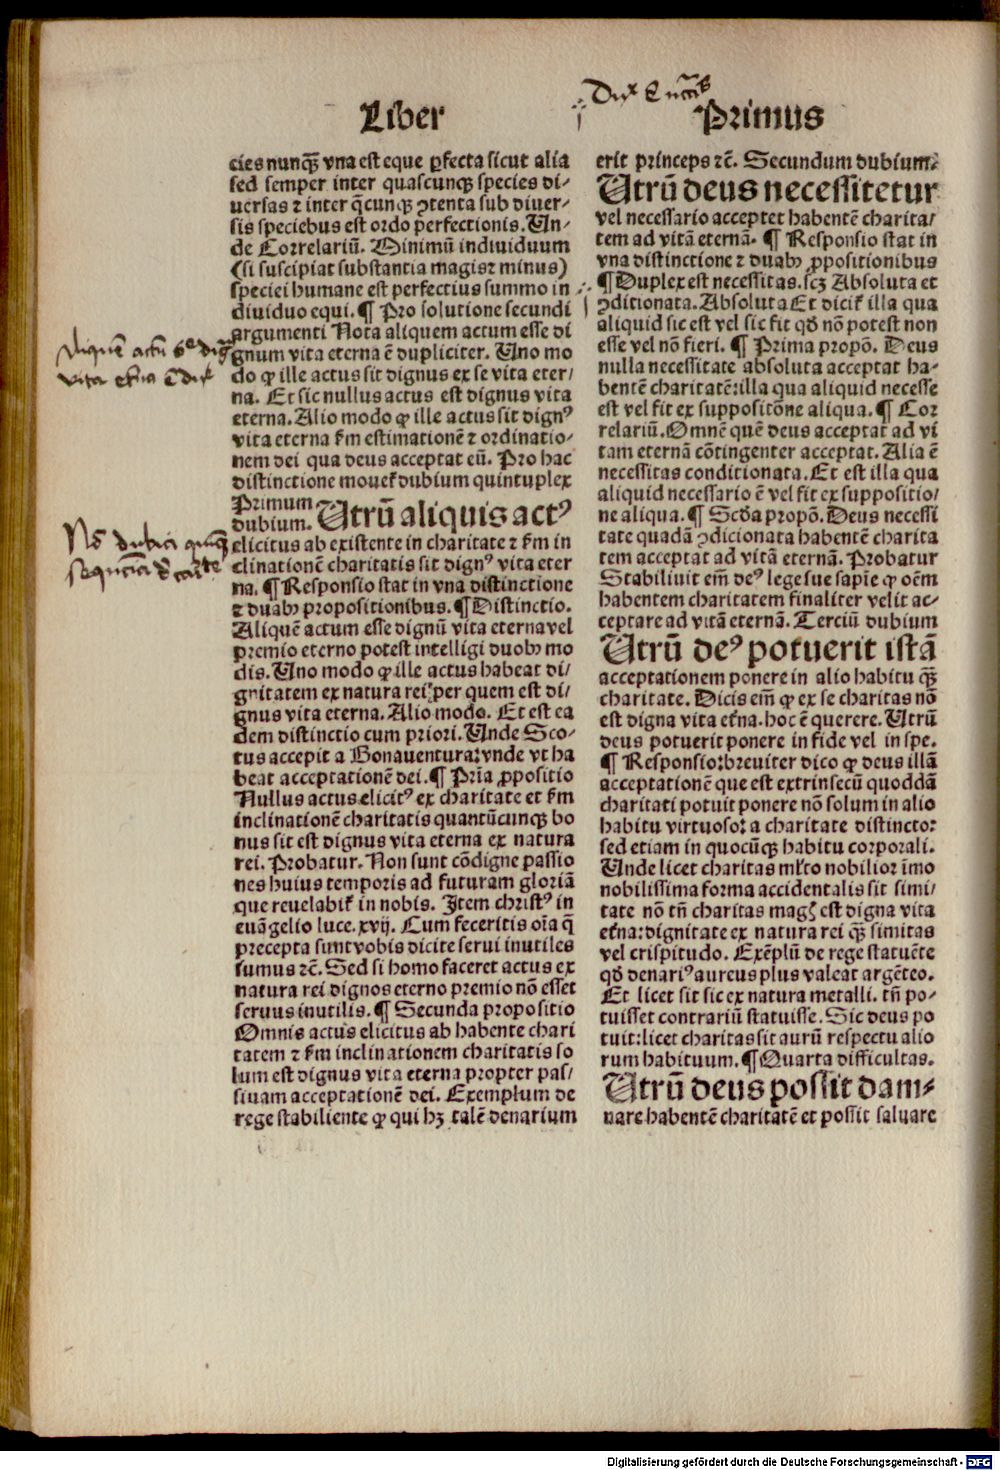 Liber
Primus
cies nunqȝ vna est eque ꝑfecta sicut alia
sed semper inter quascunqȝ species di⸗
uersas ⁊ inter q̄cunqȝ ꝯtenta sub diuer⸗
sis speciebus est ordo perfectionis. Un⸗
de Correlariū. Minimū indiuiduum
(si suscipiat substantia magis ⁊ minus)
speciei humane est perfectius summo in
diuiduo equi. ¶ Pro solutione secundi
argumenti Nota aliquem actum esse di
gnum vita eterna ē dupliciter. Uno mo
do ꝙ ille actus sit dignus ex se vita eter⸗
na. Et sic nullus actus est dignus vita
eterna. Alio modo ꝙ ille actus sit dignꝰ
vita eterna ẜm estimationē ⁊ ordinatio⸗
nem dei qua deus acceptat eū. Pro hac
distinctione mouet᷑ dubium quintuplex
Primum
dubium. Utrū aliquis actꝰ
elicitus ab existente in charitate ⁊ ẜm in
clinationē charitatis sit dignꝰ vita eter
na. ¶ Responsio stat in vna distinctione
⁊ duabꝫ propositionibus. ¶ Distinctio.
Aliquē actum esse dignū vita eterna vel
premio eterno potest intelligi duobꝫ mo
dis. Uno modo ꝙ ille actus habeat di⸗
gnitatem ex natura rei: per quem est di⸗
gnus vita eterna. Alio modo. Et est ea
dem distinctio cum priori. Unde Sco⸗
tus accepit a Bonauentura: vnde vt ha
beat acceptationē dei. ¶ Prīa ꝓpositio
Nullus actus elicitꝰ ex charitate et ẜm
inclinationē charitatis quantūcunqȝ bo
nus sit est dignus vita eterna ex natura
rei. Probatur. Non sunt cōdigne passio
nes huius temporis ad futuram gloriā
que reuelabit᷑ in nobis. Item christꝰ in
euāgelio luce. xvij. Cum feceritis oīa q̄
precepta sunt vobis dicite serui inutiles
sumus ⁊c̄. Sed si homo faceret actus ex
natura rei dignos eterno premio nō esset
seruus inutilis. ¶ Secunda propositio
Omnis actus elicitus ab habente chari
tatem ⁊ ẜm inclinationem charitatis so
lum est dignus vita eterna propter pas⸗
siuam acceptationē dei. Exemplum de
rege stabiliente ꝙ qui hꝫ talē denarium
erit princeps ⁊c̄. Secundum dubium.
Utrū deus necessitetur
vel necessario acceptet habentē charita⸗
tem ad vitā eternā. ¶ Responsio stat in
vna distinctione ⁊ duabꝫ ꝓpositionibus
¶ Duplex est necessitas. scꝫ Absoluta et
ꝯditionata. Absoluta Et dicit᷑ illa qua
aliquid sic est vel sic fit qd̄ nō potest non
esse vel nō fieri. ¶ Prima propō. Deus
nulla necessitate absoluta acceptat ha⸗
bentē charitatē: illa qua aliquid necesse
est vel fit ex suppositōne aliqua. ¶ Cor
relariū. Omnē quē deus acceptat ad vi
tam eternā cōtingenter acceptat. Alia ē
necessitas conditionata. Et est illa qua
aliquid necessario ē vel fit ex suppositio⸗
ne aliqua. ¶ Scd̄a propō. Deus necessi
tate quadā ꝯdicionata habentē charita
tem acceptat ad vitā eternā. Probatur
Stabiliuit em̄ deꝰ lege sue sapīe ꝙ oēm
habentem charitatem finaliter velit ac⸗
ceptare ad vitā eternā. Terciū dubium
Utrū deꝰ potuerit istā
acceptationem ponere in alio habitu qȝ̄
charitate. Dicis em̄ ꝙ ex se charitas nō
est digna vita et̄na. hoc ē querere. Utrū
deus potuerit ponere in fide vel in spe.
¶ Responsio: breuiter dico ꝙ deus illā
acceptationē que est extrinsecū quoddā
charitati potuit ponere nō solum in alio
habitu virtuoso: a charitate distincto:
sed etiam in quocūqȝ habitu corporali.
Unde licet charitas ml̄to nobilior īmo
nobilissima forma accidentalis sit simi⸗
tate nō tn̄ charitas mag᷒ est digna vita
et̄na: dignitate ex natura rei qȝ̄ simitas
vel crispitudo. Exēplū de rege statuēte
qd̄ denariꝰ aureus plus valeat argēteo.
Et licet sit sic ex natura metalli. tn̄ po⸗
tuisset contrariū statuisse. Sic deus po
tuit: licet charitas sit aurū respectu alio
rum habituum. ¶ Quarta difficultas.
Utrū deus possit dam⸗
nare habentē charitatē et possit saluare
Digitalisierung gefördert durch die Deutsche Forschungsgemeinschaft - DFG